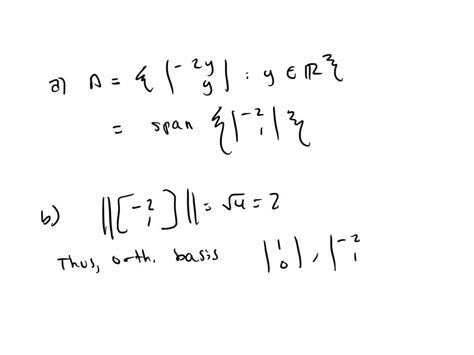 a) A = { [-2y y] : y ∈ ℝ }
= span { [-2 1] }
b) ||[-2 1]|| = √4 = 2
Thus, orth. basis [1 0], [-2 1]